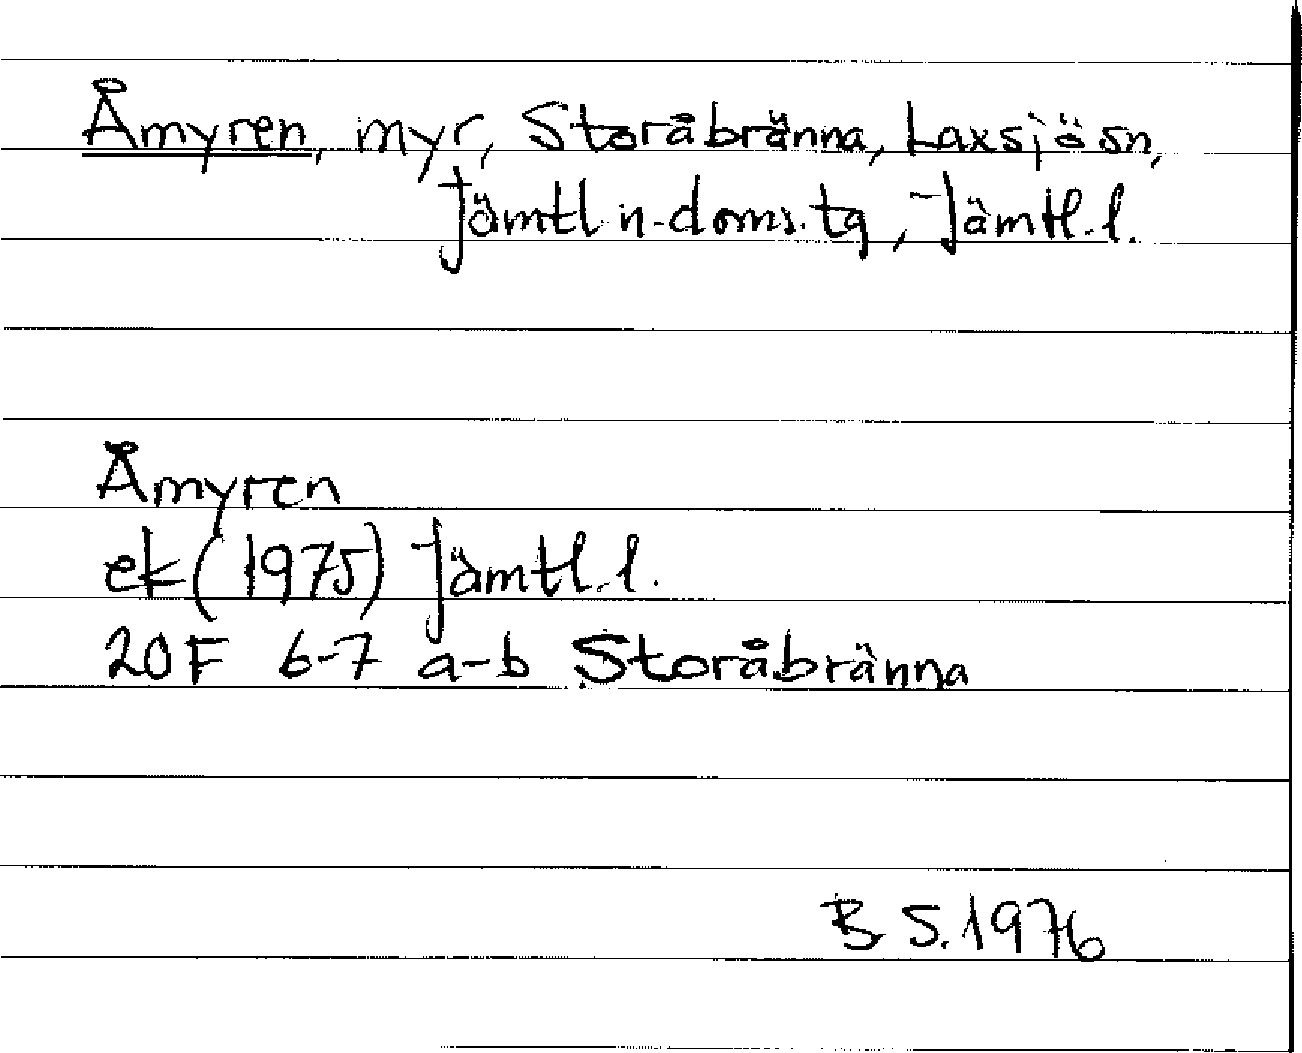 Åmyren, myr, Storåbränna, Laxsjö sn,
Jämtl. n. doms. tg, Jämtl. l.
Åmyren
ek (1975) Jämtl. l.
20F 6-7 a-b Storåbränna
B S. 1976